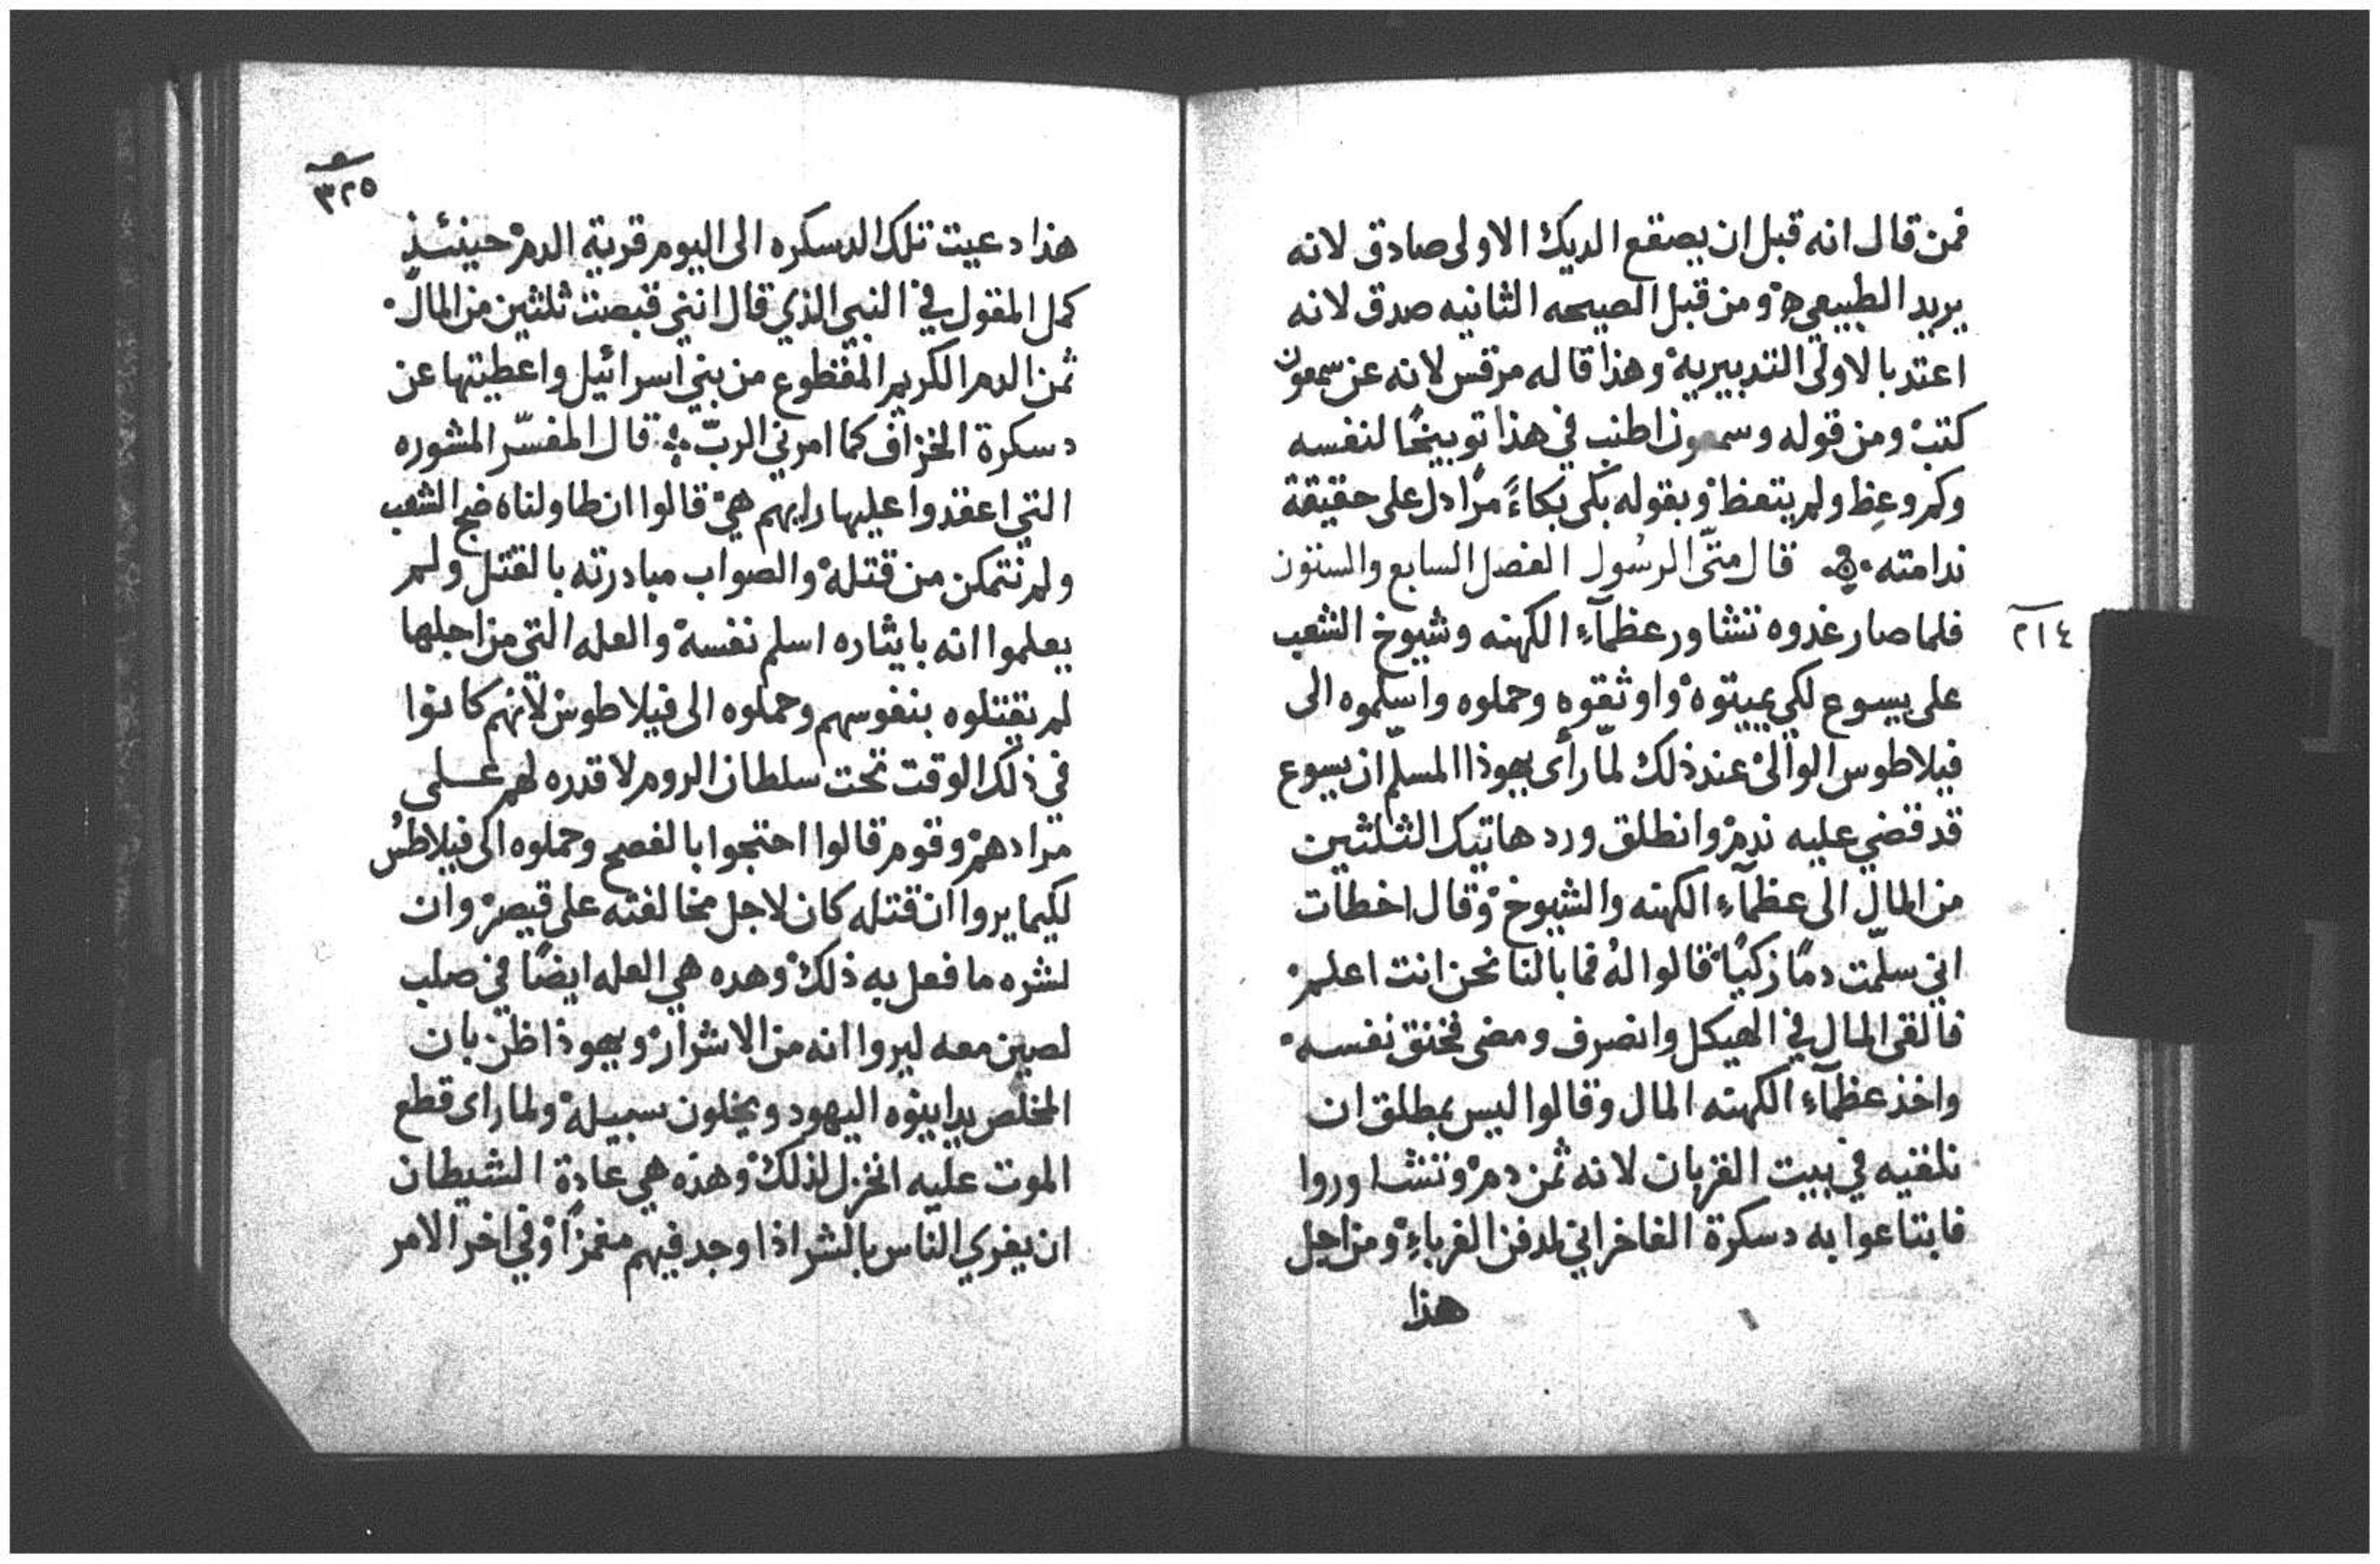 فمن قال انه قبل ان يصقع الديك الاولى صادق لانه
يريد الطبيعيه ومن قبل الصيحه الثانيه صدق لانه
اعتد بالاولى التدبيرية وهذا قاله مرقس لانه عن سمعون
كتب ومن قوله وسمعون اطنب في هذا توبيخًا لنفسه
ولم وعِظ ولم يتعظ وبقوله بكى بكاءً مرًا دل على حقيقة
ندامته قال متّى الرسُول الفصل السابع والستون
٢١٤
فلما صار غدوه تشاور عظمآء الكهنه وشيوخ الشعب
على يسوع لكي يميتوه واوثقوه وحملوه واسلموه الى
فيلاطوس الوالي عند ذلك لمّا رأى يهوذا المسلّم ان يسوع
قد قضي عليه ندم وانطلق ورد هاتيك الثلثين
من المال الى عظمآء الكهنه والشيوخ وقال اخطات
اني سلّمت دمًا زكيًا قالوا له فما بالنا نحن انت اعلم
فالقى المال في الهيكل وانصرف ومضى فخنق نفسه
واخذ عظمآء الكهنه المال وقالوا ليس بمطلق ان
نلقيه في بيت القربان لانه ثمن دم وتشاوروا
فابتاعوا به دسكرة الفاخراني لمدفن الغرباء ومن اجل
هذا
٣٢٥
هذا دعيت تلك الدسكره الى اليوم قرية الدم حينئذٍ
كمل المقول في النبي الذي قال انني قبضت ثلثين من المال
ثمن الدم الكريم المقطوع من بني اسرائيل واعطيتها عن
دسكرة الخزاف كما امرني الربّ قال المفسّر المشوره
التي اعقدوا عليها رايهم هي قالوا ان طاولناه ضج الشعب
ولم نتمكن من قتله والصواب مبادرته بالقتل ولم
يعلموا انه بايثاره اسلم نفسه والعله التي من اجلها
لم يقتلوه بنفوسهم وحملوه الى فيلاطوس لانهم كانوا
في ذلك الوقت تحت سلطان الروم لا قدره لهم على
مرادهم وقوم قالوا احتجوا بالفصح وحملوه الى فيلاطس
لكيما يروا ان قتله كان لاجل مخالفته على قيصر وان
لشره ما فعل به ذلك وهده هي العله ايضًا في صلب
لصين معه ليروا انه من الاشرار ويهوذا ظن بان
المخلص يداينوه اليهود ويخلون سبيله ولما راى قطع
الموت عليه انخزل لذلك وهذه هي عادة الشيطان
ان يغري الناس بالشر اذا وجد فيهم مغمزًا وفي اخر الامر